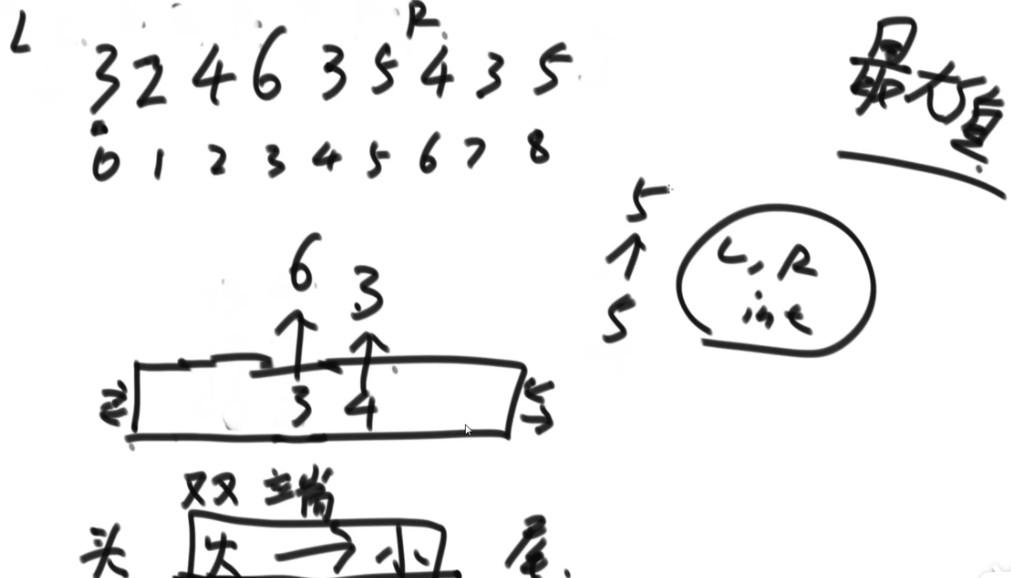 L R
3 2 4 6 3 5 4 3 5
0 1 2 3 4 5 6 7 8
最大值
6 3
3 4
5
↑
5
L, R
int
双端
头 大 → 小 尾